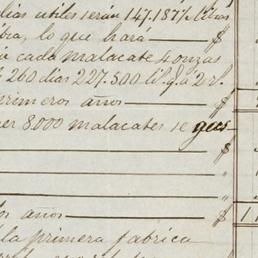 dias utiles serán 147.187½ libras
bra, lo que hará — $
a cada malacate 4 onzas
260 dias 227.500 lb. á 2 rl.
primeros años — $
er 8.000 malacates se gas
$
os años — $ 1
la primera fabrica